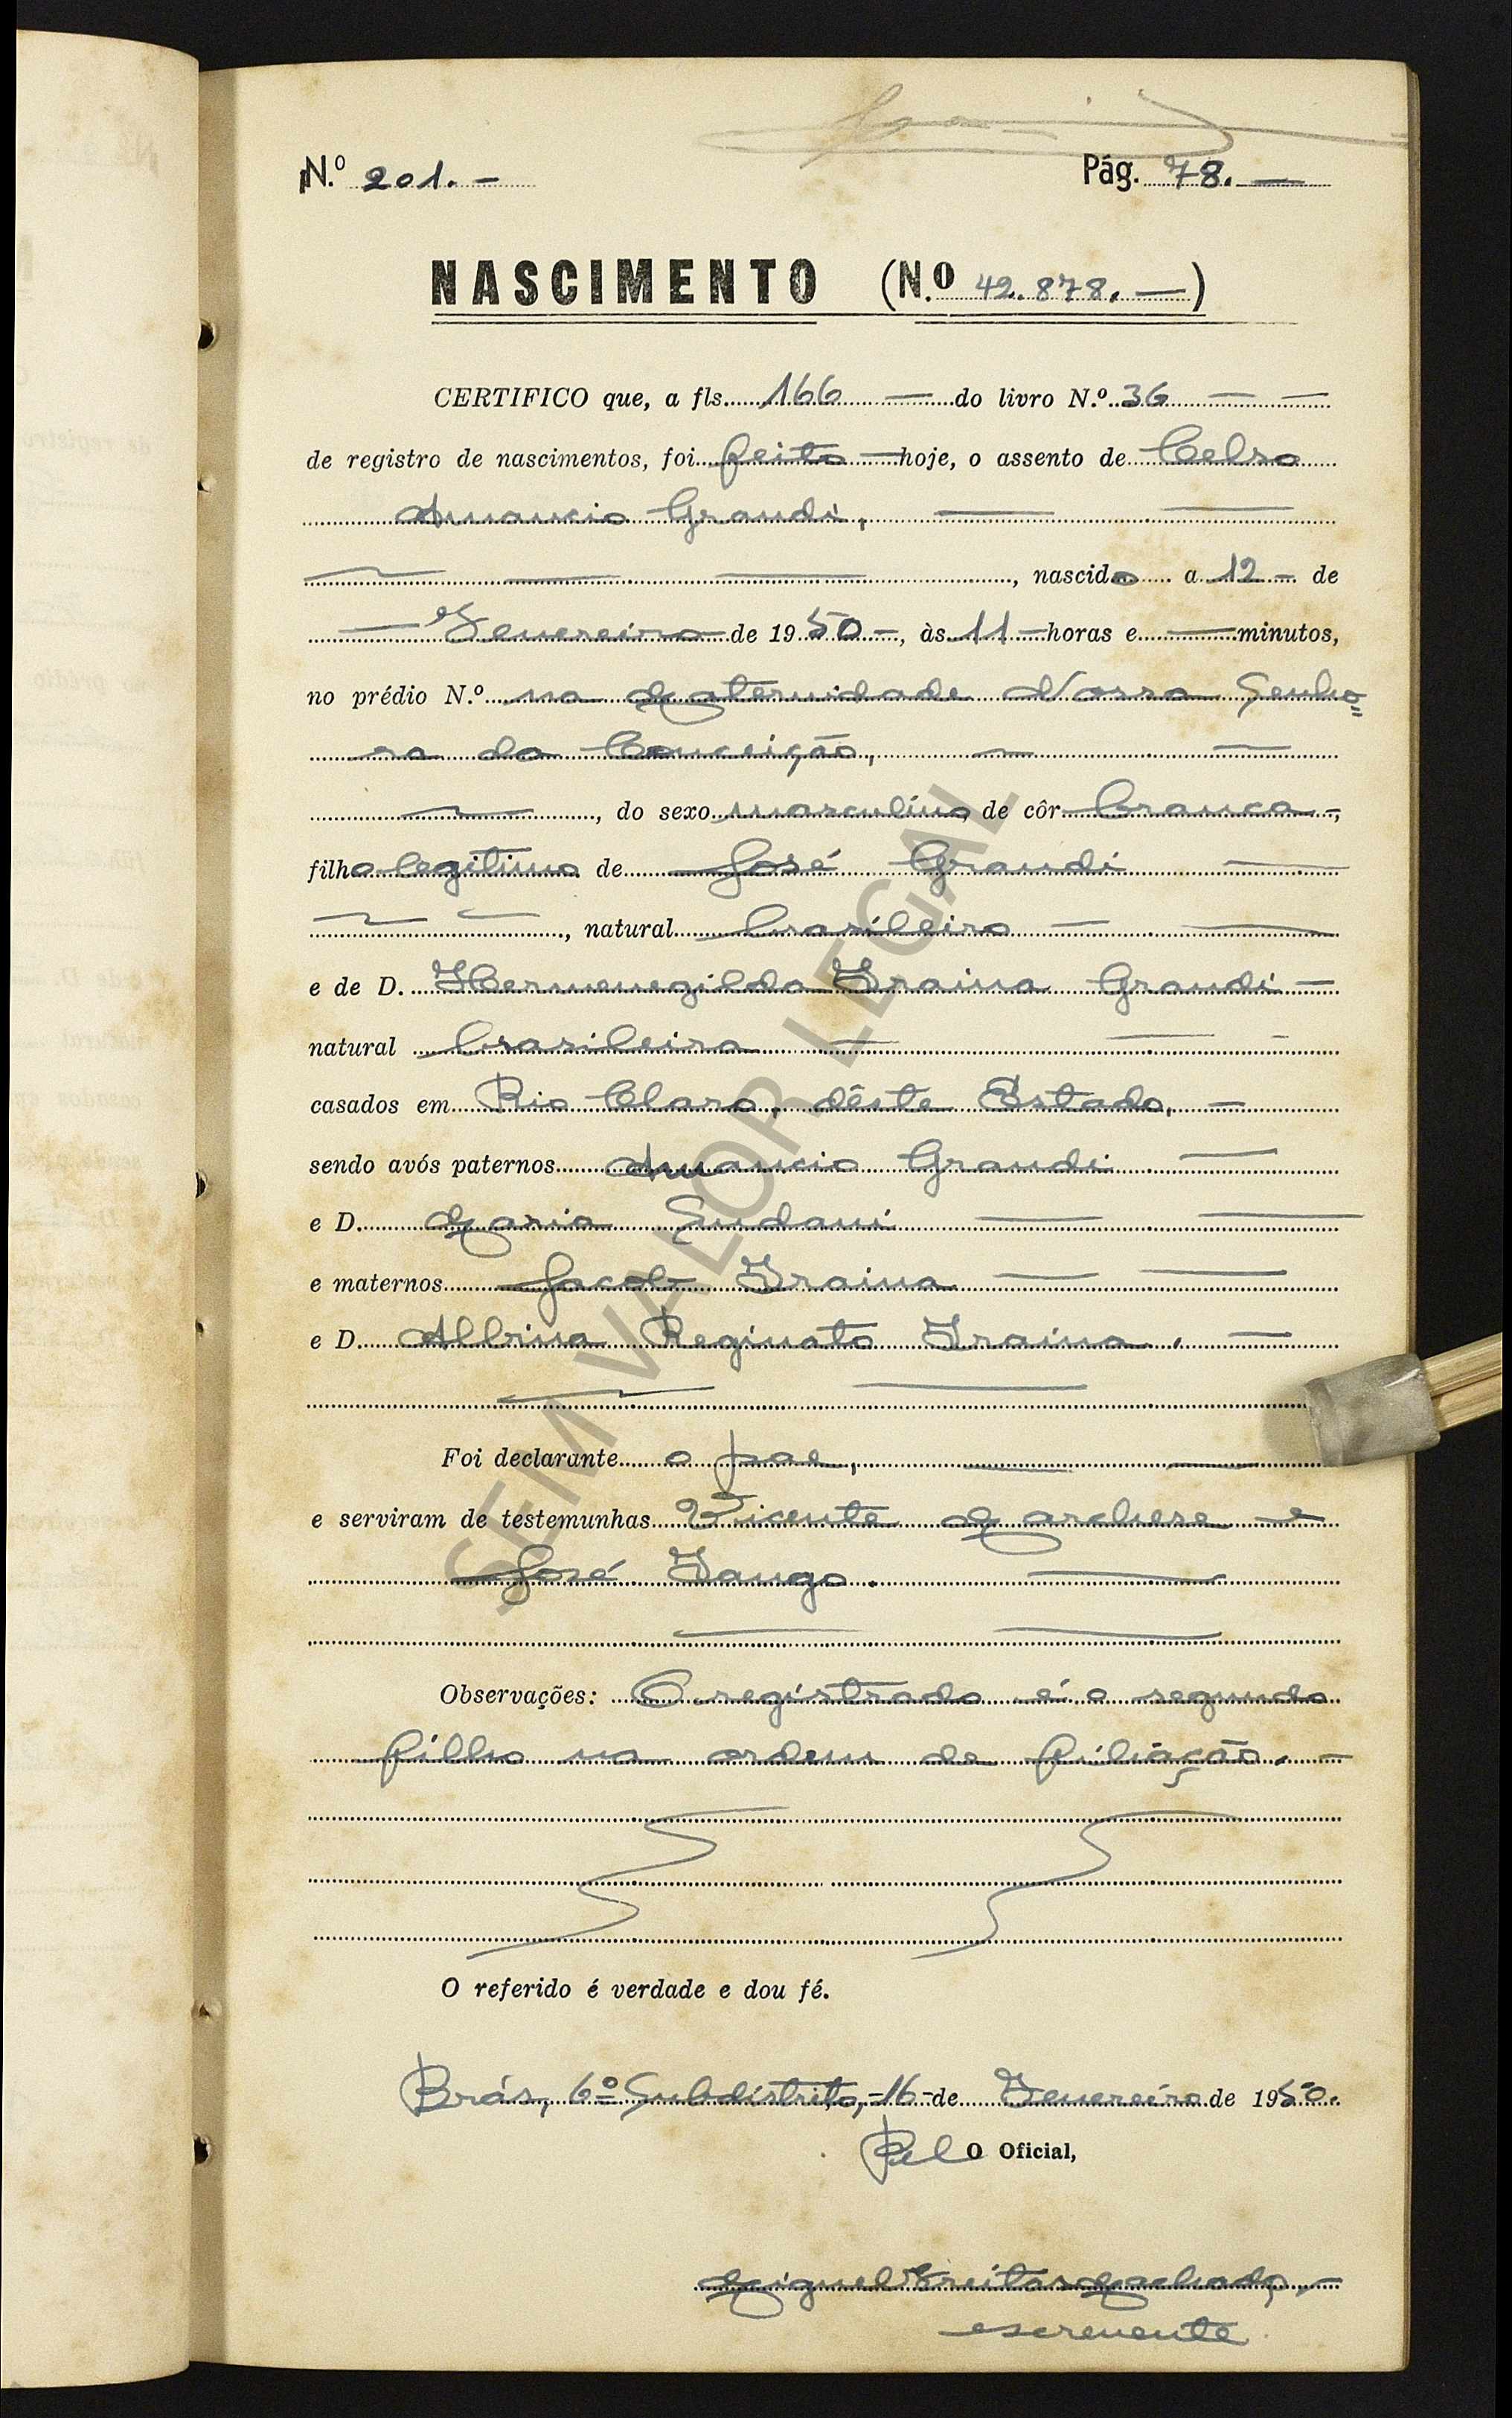 N.º 201. —
Pág. 78. —
NASCIMENTO (N.º 42.878. —)
CERTIFICO que, a fls. 166 — do livro N.º 36 — —
de registro de nascimentos, foi feito — hoje, o assento de Celso
Amancio Grandi, — —
— — —, nascido a 12 — de
— Fevereiro — de 1950 —, às 11 — horas e — minutos,
no prédio N.º na Maternidade Nossa Senho=
ra da Conceição, — —
—, do sexo masculino, de côr branca —,
filho legitimo de — José Grandi —
— —, natural brasileiro — —
e de D. Hermenegilda Fraina Grandi —
natural brasileira — — —
casados em Rio Claro, dêste Estado, —
sendo avós paternos Amancio Grandi —
e D. Maria — —
e maternos Jacob Fraina — —
e D. Albina Reginato Fraina. —
— —
Foi declarante o pae, — —
e serviram de testemunhas Vicente Marchese e
José —
— —
Observações: O registrado é o segundo
filho na ordem de filiação. —
O referido é verdade e dou fé.
Brás, 6º Subdistrito, -16- de Fevereiro de 1950.
Pel O Oficial,
Miguel Freitas Machado, —
escrevente
SEM VALOR LEGAL